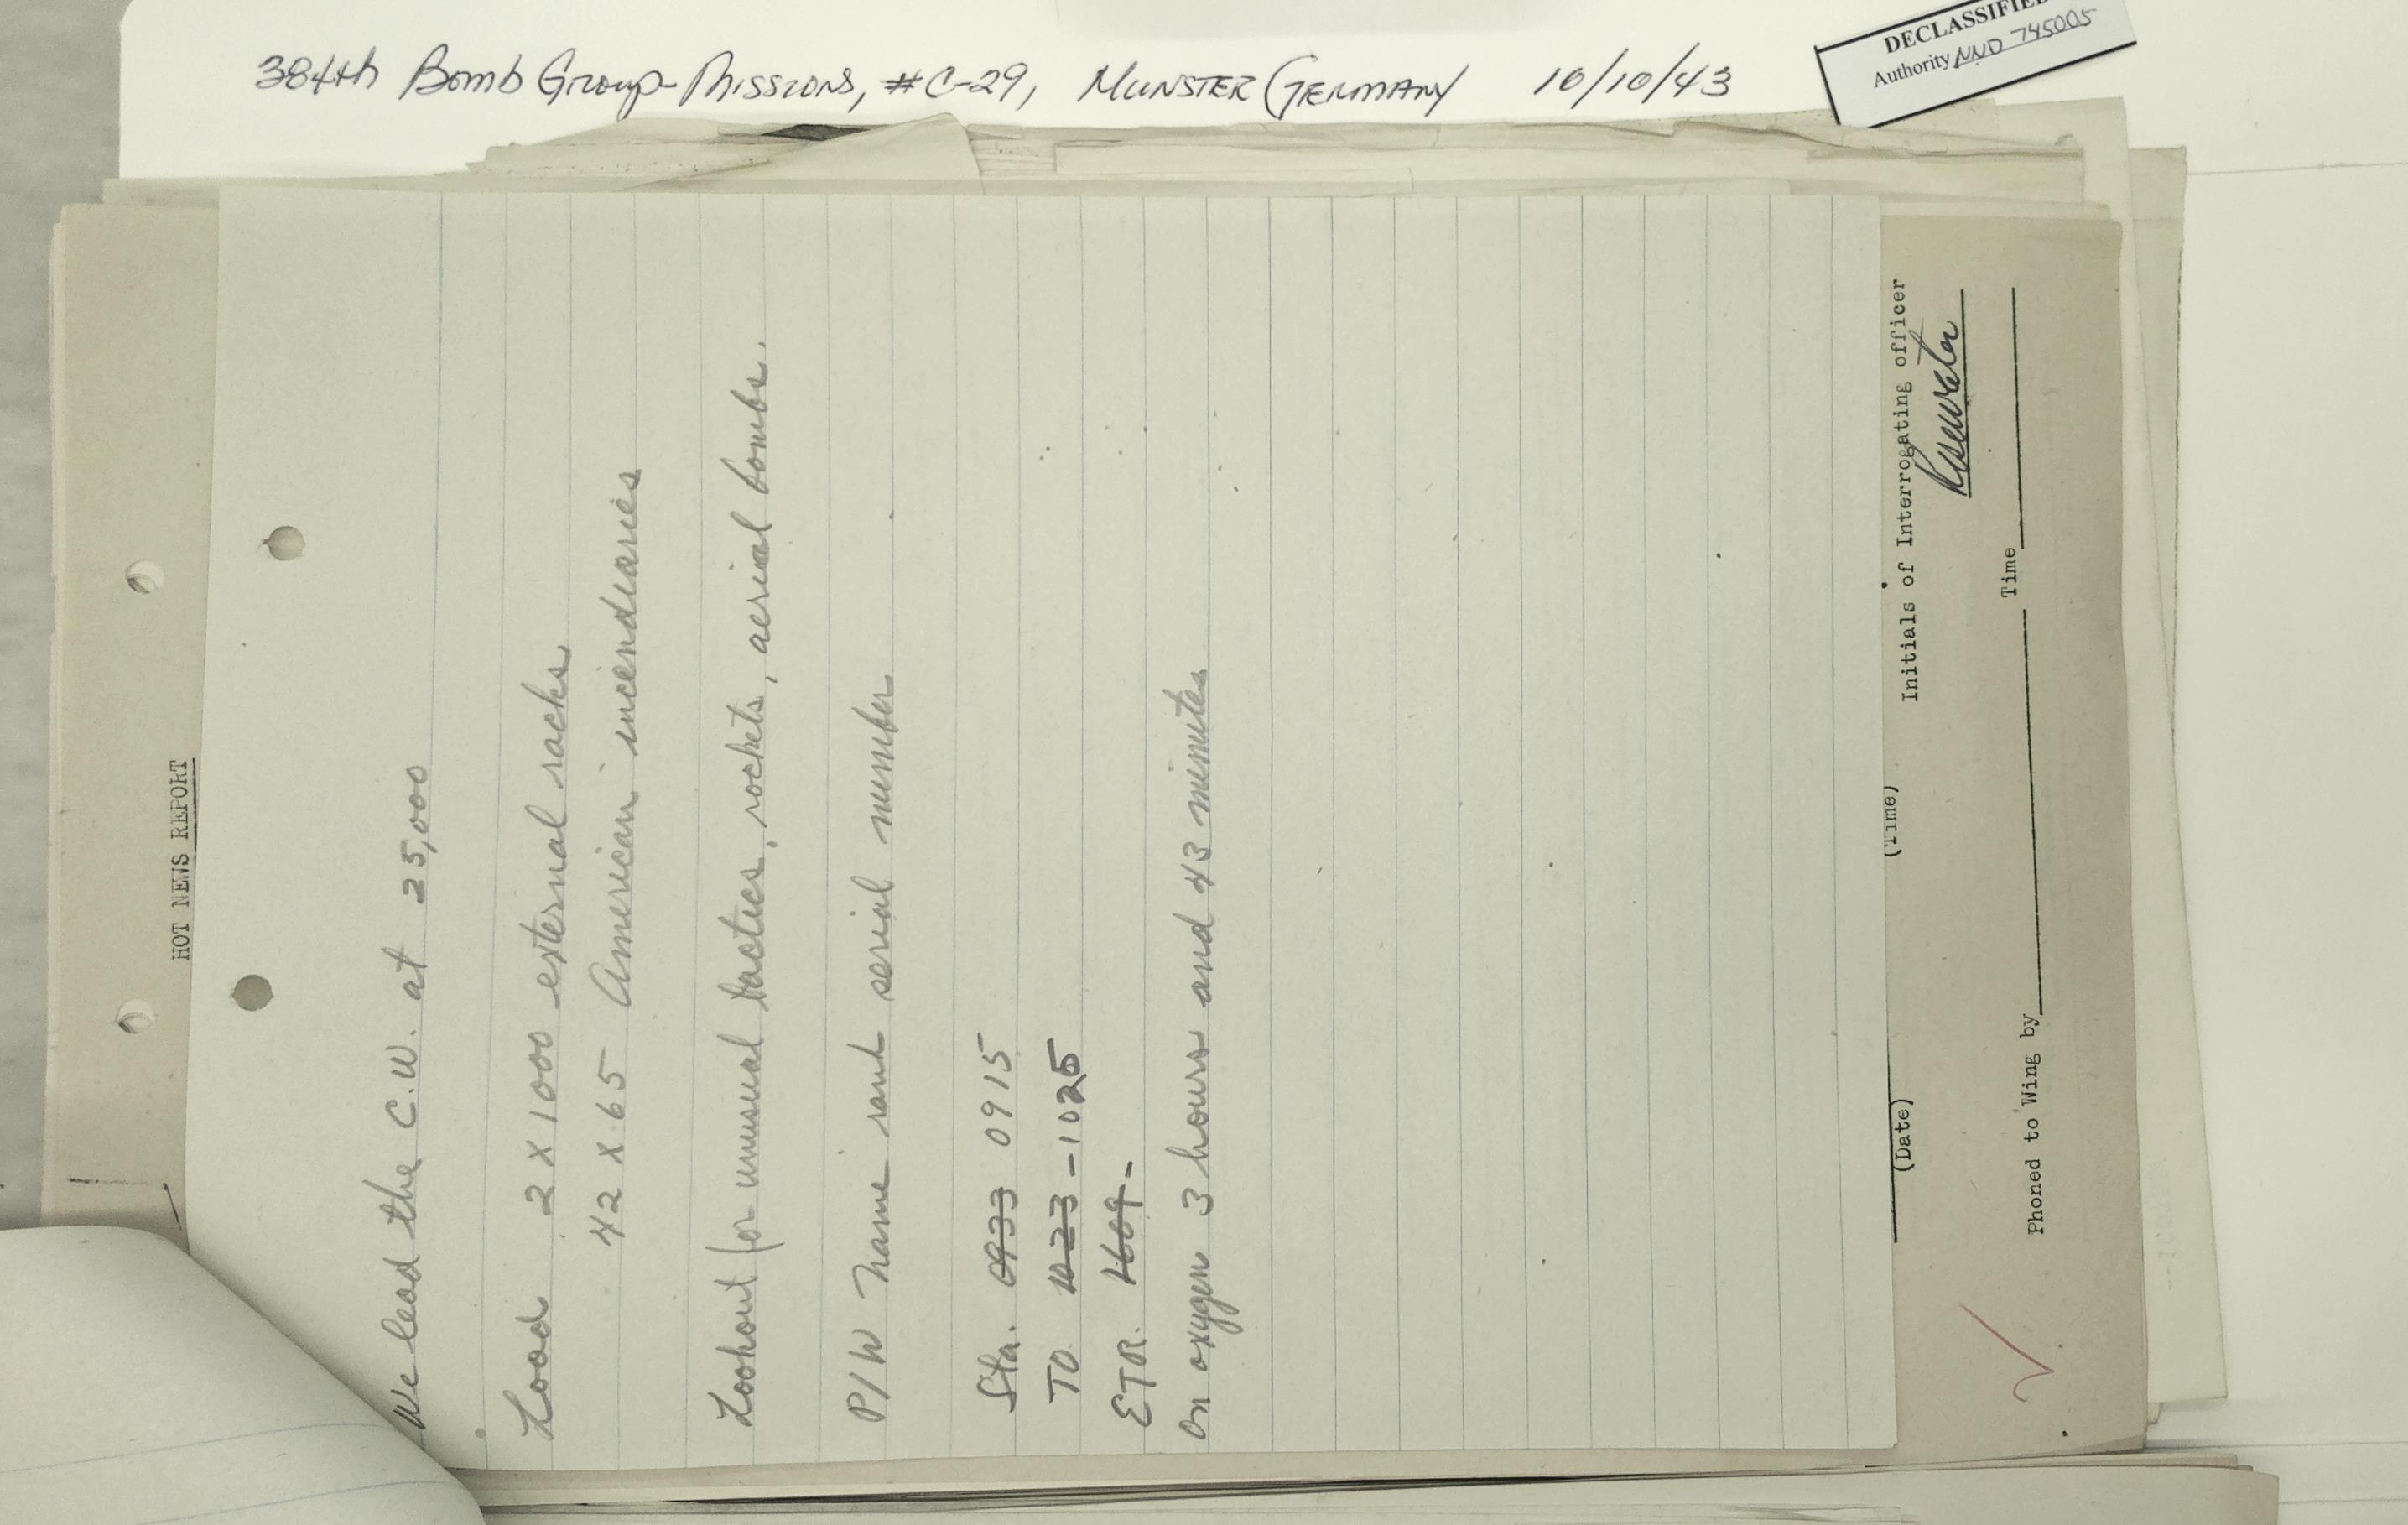 384th Bomb Group-Missions, #C-29, MUNSTER GERMANY 10/10/43
DECLASSIFIED
Authority NND 745005
HOT NEWS REPORT
We lead the C.W. at 25,000
Load 2 X 1000 external racks
42 X 65 American incendiaries
Lookout for unusual tactics, rockets, aerial bombs.
P/W Name rank serial number
Sta. 0933 0915
TO. 1023 - 1025
ETR. 1609 -
On oxygen 3 hours and 43 minutes
(Date) (Time) Initials of Interrogating officer
Phoned to Wing by Time